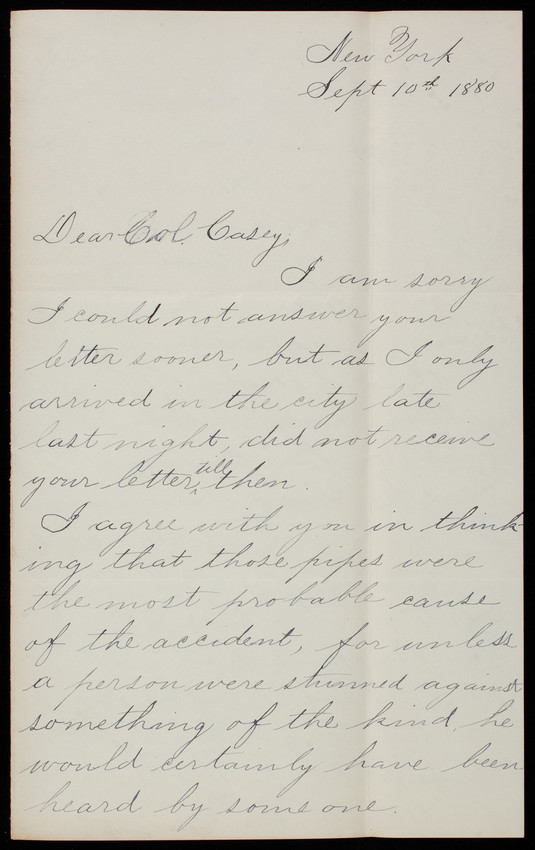 New York
Sept 10th 1880
Dear Col. Casey,
I am sorry
I could not answer your
letter sooner, but as I only
arrived in the city late
last night, did not receive
your letter till then.
I agree with you in think-
ing that those pipes were
the most probable cause
of the accident, for unless
a person were stunned against
something of the kind he
would certainly have been
heard by some one.